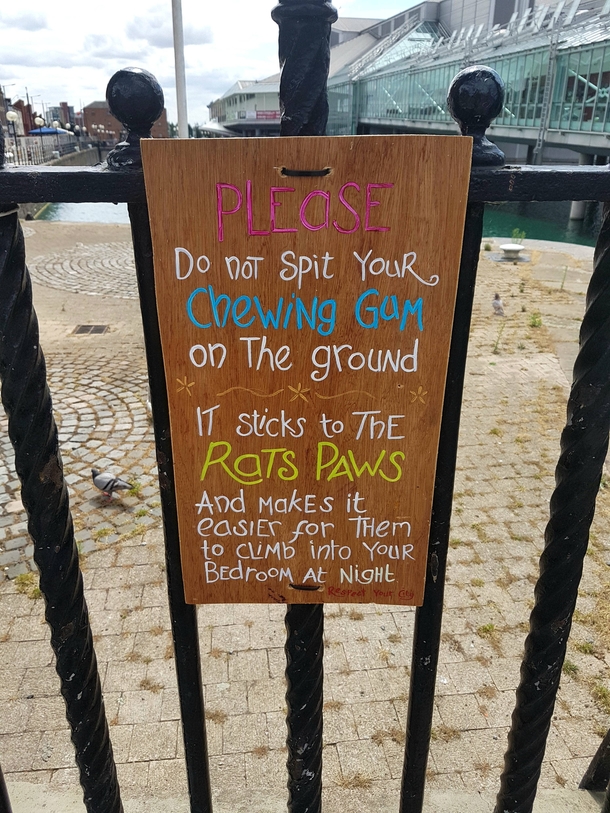 PLEaSE
Do noT Spit YouR
Chewing Gum
on The ground
IT sticks to ThE
RaTS PAWS
And MAKEs it
easiER for THem
to CLIMb into YOUR
BedRoom At Night
Respect Your City